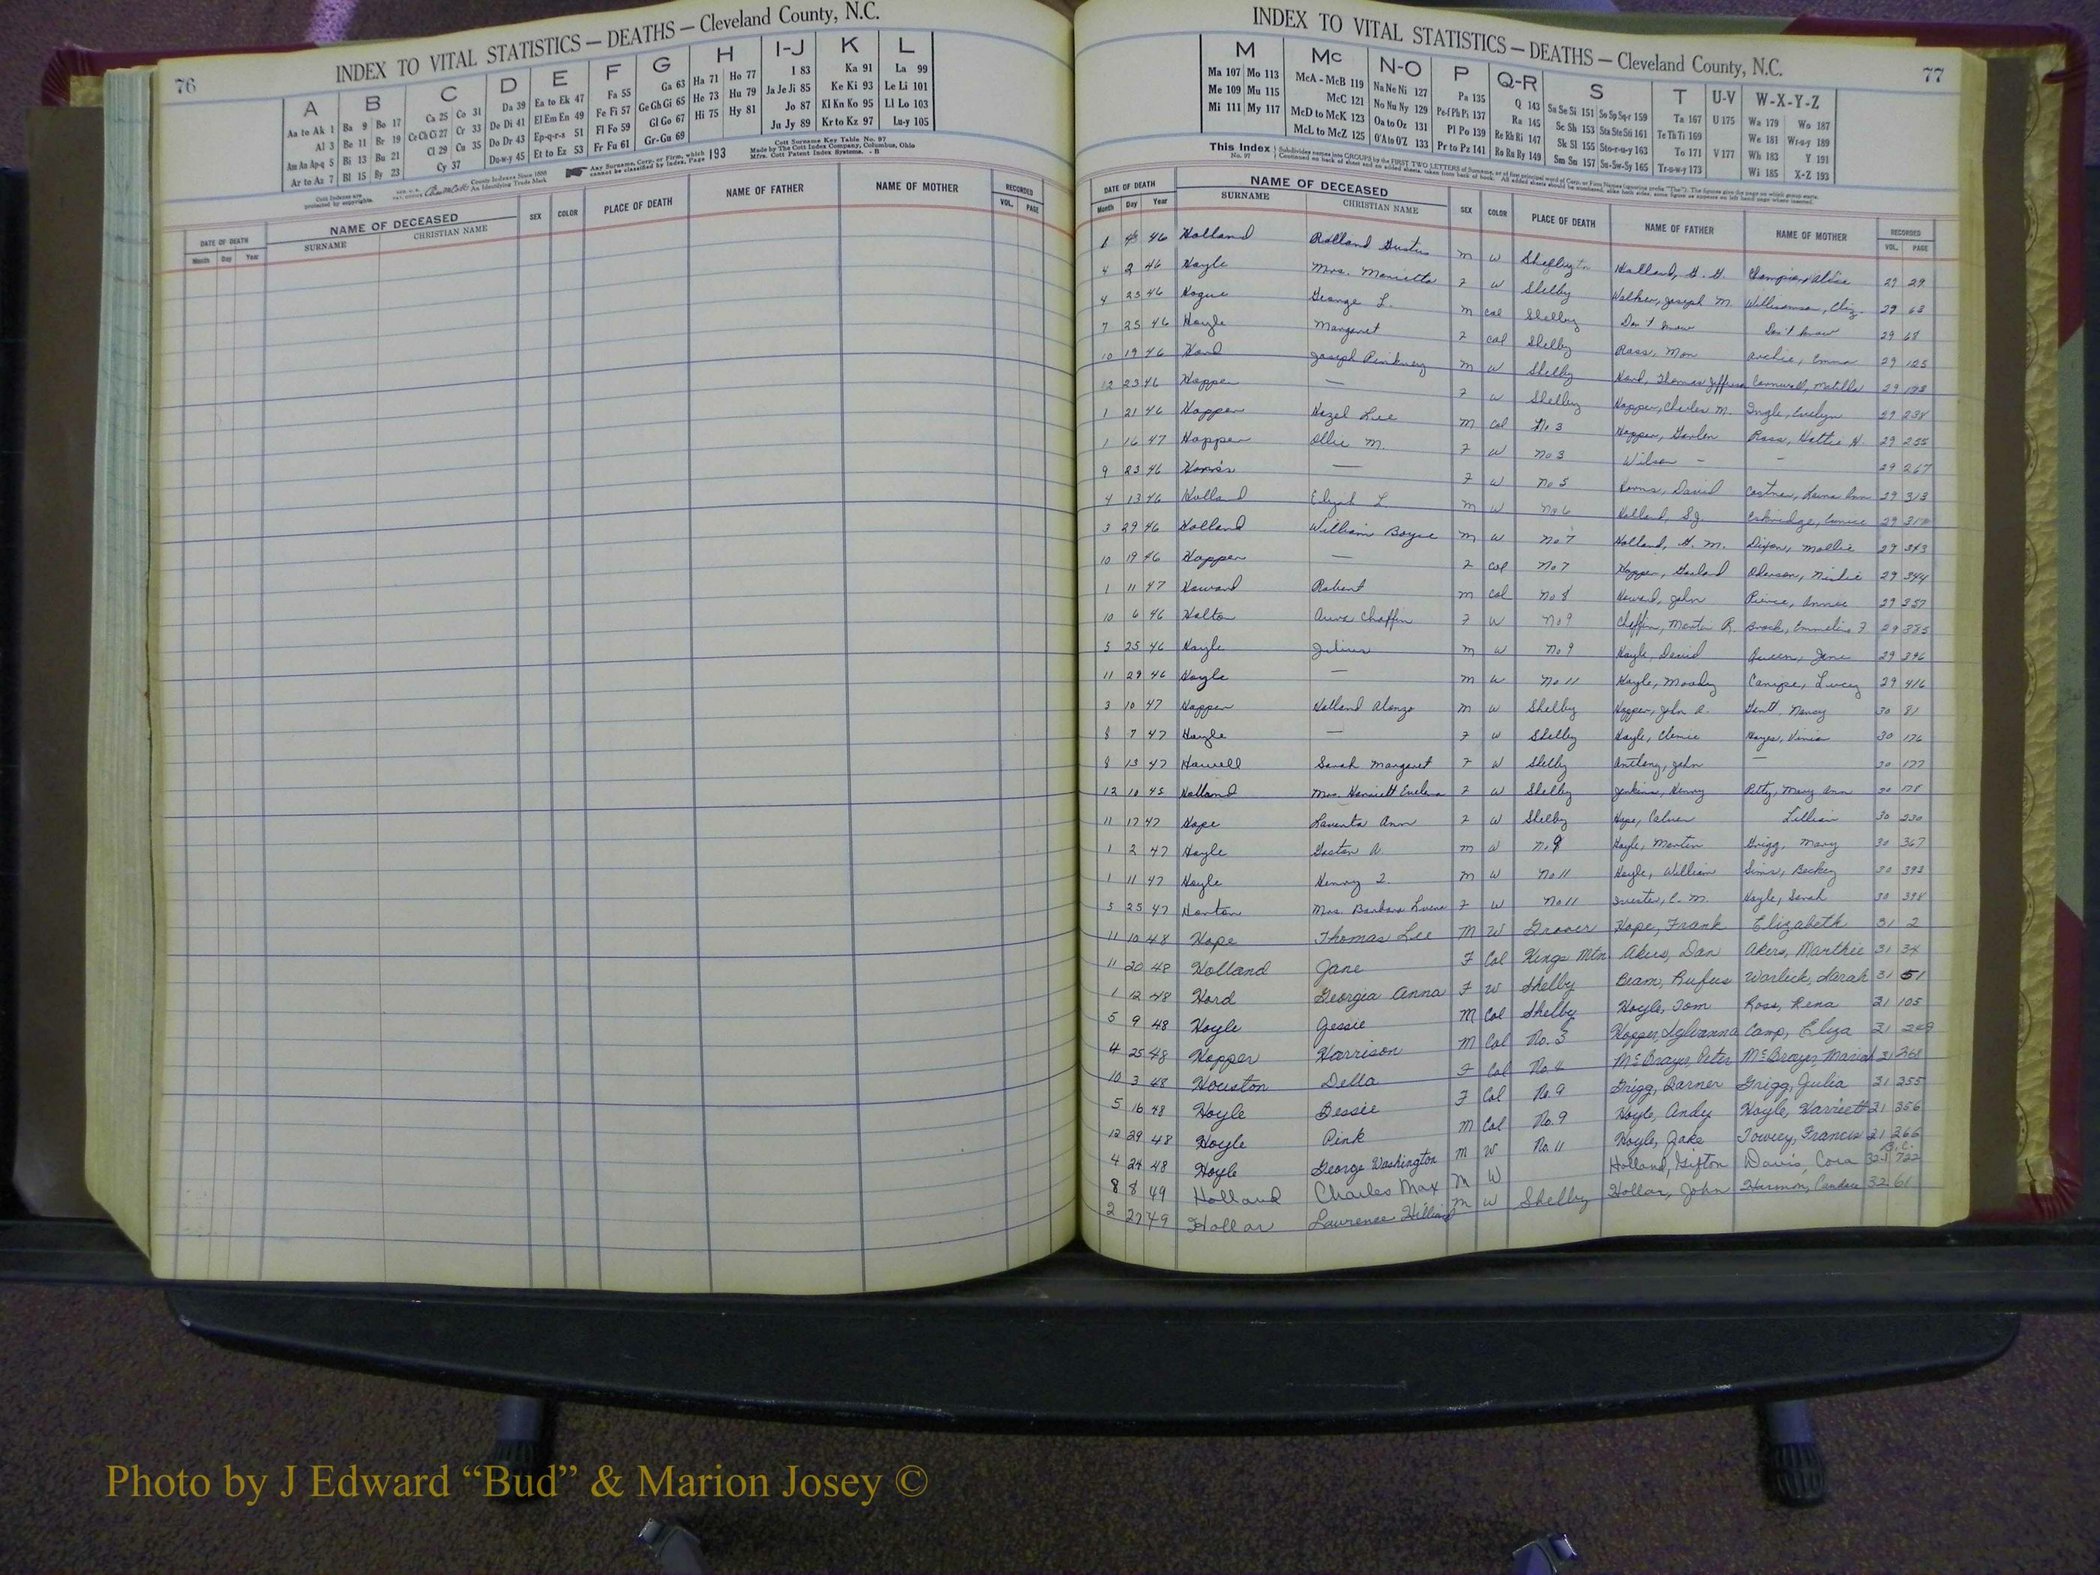 76
INDEX TO VITAL STATISTICS — DEATHS — Cleveland County, N.C.
A B C D E F G H I-J K L
Aa to Ak 1 Ba 9 Bo 17 Ca 25 Co 31 Da 39 Ea to Ek 47 Fa 55 Ga 63 Ha 71 Ho 77 I 83 Ka 91 La 99
Al 3 Be 11 Br 19 Ce Ch Ci 27 Cr 33 De Di 41 El Em En 49 Fe Fi 57 Ge Gh Gi 65 He 73 Hu 79 Ja Je Ji 85 Ke Ki 93 Le Li 101
Am An Ap-q 5 Bi 13 Bu 21 Cl 29 Cu 35 Do Dr 43 Ep-q-r-s 51 Fl Fo 59 Gl Go 67 Hi 75 Hy 81 Jo 87 Kl Kn Ko 95 Ll Lo 103
Ar to Az 7 Bl 15 By 23 Cy 37 Du-w-y 45 Et to Ez 53 Fr Fu 61 Gr-Gu 69 Ju Jy 89 Kr to Kz 97 Lu-y 105
Cott Indexes are protected by copyrights.
County Indexes Since 1888
An Identifying Trade Mark
Any Surname, Corp. or Firm, which cannot be classified by Index, Page 193
Cott Surname Key Table No. 97
Made by The Cott Index Company, Columbus, Ohio
Mfrs. Cott Patent Index Systems. - B
DATE OF DEATH NAME OF DECEASED SEX COLOR PLACE OF DEATH NAME OF FATHER NAME OF MOTHER RECORDED
Month Day Year SURNAME CHRISTIAN NAME VOL. PAGE
INDEX TO VITAL STATISTICS — DEATHS — Cleveland County, N.C.
77
M Mc N-O P Q-R S T U-V W-X-Y-Z
Ma 107 Mo 113 McA - McB 119 Na Ne Ni 127 Pa 135 Q 143 Sa Se Si 151 So Sp Sq-r 159 Ta 167 U 175 Wa 179 Wo 187
Me 109 Mu 115 McC 121 No Nu Ny 129 Pe-f Ph Pi 137 Ra 145 Sc Sh 153 Sta Ste Sti 161 Te Th Ti 169 We 181 Wr-u-y 189
Mi 111 My 117 McD to McK 123 Oa to Oz 131 Pl Po 139 Re Rh Ri 147 Sk Sl 155 Sto-r-u-y 163 To 171 V 177 Wh 183 Y 191
McL to McZ 125 O'A to O'Z 133 Pr to Pz 141 Ro Ru Ry 149 Sm Sn 157 Su-Sw-Sy 165 Tr-u-w-y 173 Wi 185 X-Z 193
This Index No. 97 Subdivides names into GROUPS by the FIRST TWO LETTERS of Surname, or of first principal word of Corp. or Firm Names (ignoring prefix "The"). The figures give the page on which group starts.
DATE OF DEATH NAME OF DECEASED SEX COLOR PLACE OF DEATH NAME OF FATHER NAME OF MOTHER RECORDED
Month Day Year SURNAME CHRISTIAN NAME VOL. PAGE
46 Holland Rolland M W Holland, 29 29
4 2 46 Hoyle Mrs. Marietta F W Shelby Walker, Joseph M. Williamson, Eliz. 29 63
4 23 46 Hogue George L. M Col Shelby Don't know Don't know 29 68
7 25 46 Hoyle Margaret F Col Shelby Ross, Mon Archie, Emma 29 125
10 19 46 Hord Joseph Pinkney M W Shelby Hord, Thomas Jefferson Cornwell, Matilda 29
12 23 46 Hopper — F W Shelby Hopper, Charles M. Ingle, Evelyn 29 238
1 21 46 Hopper Hazel Lee M Col No 3 Hopper, Ross, Hattie H. 29 255
1 16 47 Hopper Ollie M. F W No 3 Wilson — — 29 267
9 23 46 — F W No 5 David Costner, Ann 29 313
4 13 46 Holland Elijah L. M W No 6 Holland, Eskridge, 29
3 29 46 Holland William Boyce M W No 7 Holland, G. M. Dixon, Mollie 29 343
10 19 46 Hopper — F Col No 7 Hopper, Garland 29 344
1 11 47 Howard Robert M Col No 8 Howard, John Pierce, Annie 29 357
10 6 46 Holton Chaffin F W No 9 Chaffin, Martin R. Brock, Emmeline F 29 385
5 25 46 Hoyle Julius M W No 9 Hoyle, David Queen, Jane 29 396
11 29 46 Hoyle — M W No 11 Hoyle, Moody Canipe, Lucy 29 416
3 10 47 Hopper Holland Alonzo M W Shelby Hopper, John A. Gantt, Nancy 30 81
8 7 47 Hoyle — F W Shelby Hoyle, Clemie Hayes, 30 176
8 13 47 Howell Sarah Margaret F W Shelby Anthony, John — 30 177
12 10 45 Holland Mrs. Harriett Evelena F W Shelby Jenkins, Henry Petty, Mary Ann 30 178
11 17 47 Hope Ann F W Shelby Hope, Calver Lillian 30 230
1 2 47 Hoyle Gaston A. M W No 9 Hoyle, Martin Grigg, Mary 30 367
1 11 47 Hoyle Henry M W No 11 Hoyle, William Sims, Becky 30 393
5 25 47 Horton Mrs. Barbara F W No 11 C. M. Hoyle, Sarah 30 398
11 10 48 Hope Thomas Lee M W Grover Hope, Frank Elizabeth 31 2
11 20 48 Holland Jane F Col Kings Mtn. Akers, Dan Akers, Marthie 31 34
1 12 48 Hord Georgia Anna F W Shelby Beam, Rufus Warlick, Sarah 31 51
5 9 48 Hoyle Jessie M Col Shelby Hoyle, Tom Ross, Rena 31 105
4 25 48 Hopper Harrison M Col No. 3 Hopper, Sylvanna Camp, Eliza 31 249
10 3 48 Houston Della F Col No. 4 McBrayer, Peter McBrayer, Mariah 31 268
5 16 48 Hoyle Bessie F Col No. 9 Grigg, Barner Grigg, Julia 31 355
12 29 48 Hoyle Pink M Col No. 9 Hoyle, Andy Hoyle, Harriett 31 356
4 24 48 Hoyle George Washington M W No. 11 Hoyle, Jake Towery, Francis 31 366
8 8 49 Holland Charles Max M W Holland, Gifton Davis, Cora 32 722
2 27 49 Hollar Laurence M W Shelby Hollar, John Harmon, Candace 32 61
Photo by J Edward “Bud” & Marion Josey ©